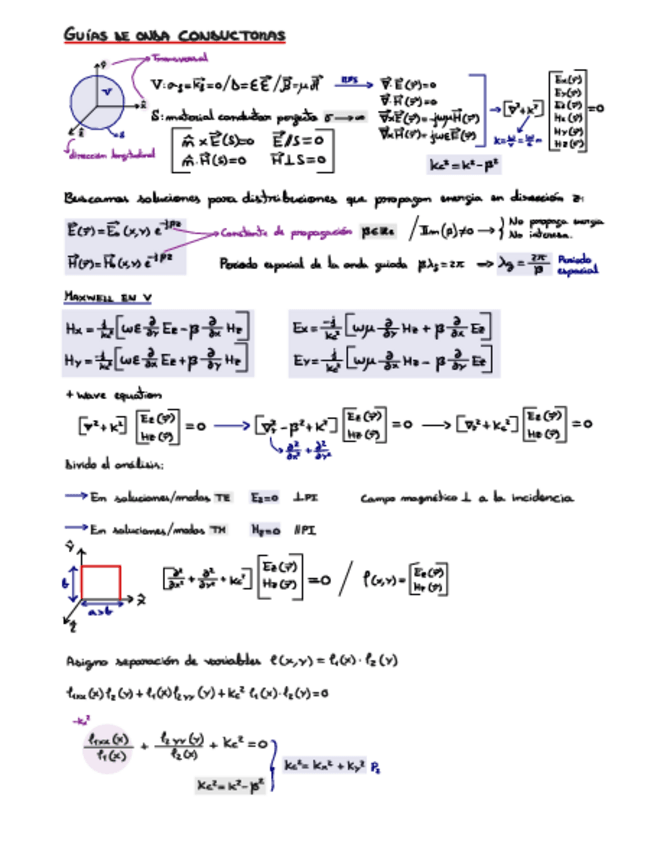 GUÍAS DE ONDA CONDUCTORAS
Transversal
V: σ_S=K_S=0 / D=εE / B=μH
RPS
∇·E(r)=0
∇·H(r)=0
∇xE(r)=-jωμH(r)
∇xH(r)=jωεE(r)
[∇²+K²] [Ex(r) Ey(r) Ez(r) Hx(r) Hy(r) Hz(r)] =0
S: material conductor perfecto σ→∞
n̂ x E(S)=0 E∥S=0
n̂·H(S)=0 H⊥S=0
dirección longitudinal
Kc²=K²-β²
Buscamos soluciones para distribuciones que propagan energia en dirección z:
E(r)=E₀(x,y) e^-jβz
Constante de propagación β∈Re / Im(β)≠0 → No propaga energia
No interesa.
H(r)=H₀(x,y) e^-jβz
Periodo espacial de la onda guiada βλg=2π ⇒ λg=2π/β Periodo espacial
MAXWELL EN V
Hx=j/Kc² [ωε ∂/∂y Ez-β ∂/∂x Hz]
Ex=-j/Kc² [ωμ ∂/∂y Hz+β ∂/∂x Ez]
Hy=-j/Kc² [ωε ∂/∂x Ez+β ∂/∂y Hz]
Ey=j/Kc² [ωμ ∂/∂x Hz-β ∂/∂y Ez]
+ wave equation
[∇²+K²] [Ez(r) Hz(r)] =0 → [∇T²-β²+K²] [Ez(r) Hz(r)] =0 → [∇T²+Kc²] [Ez(r) Hz(r)] =0
∂²/∂x² + ∂²/∂y²
Divido el análisis:
→ En soluciones/modos TE Ez=0 ⊥PI Campo magnético ⊥ a la incidencia
→ En soluciones/modos TM Hz=0 ∥PI
ŷ
b
a>b
x̂
ẑ
[∂²/∂x² + ∂²/∂y² + Kc²] [Ez(r) Hz(r)] =0 / f(x,y)= [Ez(r) Hz(r)]
Asigno separación de variables f(x,y)=f₁(x)·f₂(y)
f₁xx(x)f₂(y)+f₁(x)f₂yy(y)+Kc² f₁(x)·f₂(y)=0
-Kx²
f₁xx(x)/f₁(x) + f₂yy(y)/f₂(y) + Kc²=0
Kc²=Kx²+Ky²
Kc²=K²-β²